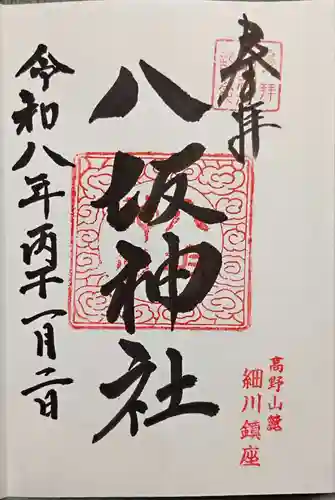 奉拝
高野山麓
細川鎮座
八坂神社
令和八年丙午一月二日